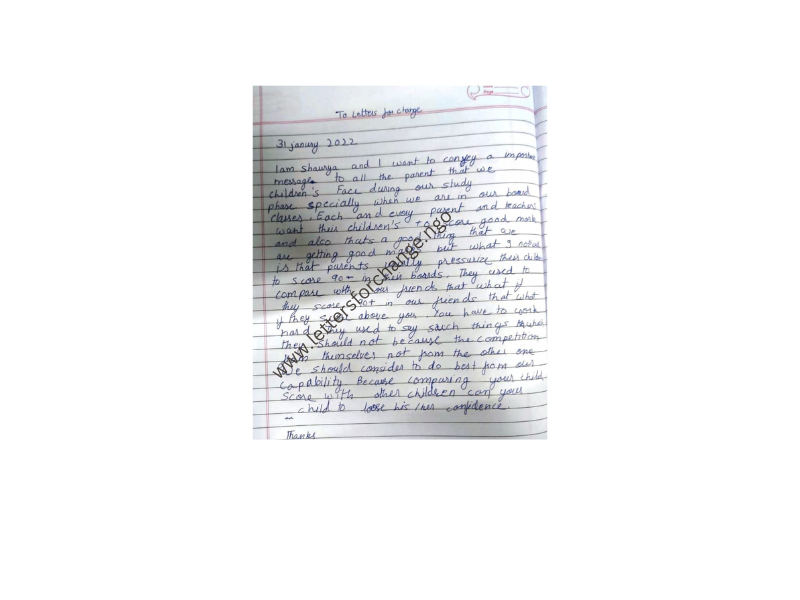 To Letters for change
31 janury 2022
I am Shaurya and I want to convey a important
message to all the parent that we
children's Face during our study
phase specially when we are in our board
classes. Each and every parent and teachers
want their children's to score good marks
and also thats a good thing that we
are getting good marks but what I notice
is that parents really pressurize their child
to score 90+ in their boards. They used to
compare with our friends that what if
they score 90+ in our friends that what
if they score above you. You have to work
hard they used to say such things
they should not because the competition
from themselves not from the other one
we should consider to do best from our
capability. Because comparing your child
score with other children can your
child to loose his/her confidence.
Thanks
www.lettersforchange.ngo